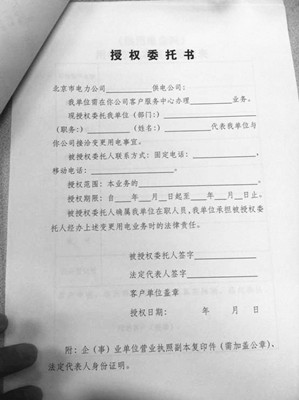 授权委托书
北京市电力公司__________供电公司:
我单位需在你公司客户服务中心办理__________业务。
现授权委托我单位（部门:）__________
（职务:）__________（姓名:）__________代表我单位与
你公司接洽变更用电事宜。
被授权委托人联系方式：固定电话：__________，
移动电话：__________。
授权范围：本业务的__________。
授权期限：自____年__月__日起至____年__月__日止。
被授权委托人确属我单位在职人员，我单位承担被授权委
托人经办上述变更用电业务时的法律责任。
被授权委托人签字__________
法定代表人签字__________
客户单位盖章
授权日期： 年 月 日
附：企（事）业单位营业执照副本复印件（需加盖公章）、
法定代表人身份证明。